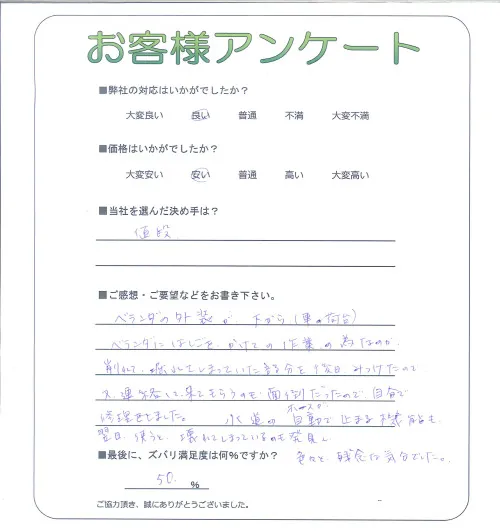 お客様アンケート
■弊社の対応はいかがでしたか？
大変良い 良い 普通 不満 大変不満
■価格はいかがでしたか？
大変安い 安い 普通 高い 大変高い
■当社を選んだ決め手は？
値段
■ご感想・ご要望などをお書き下さい。
ベランダの外装が 下から（車の荷台）
ベランダにはしごをかけての作業の為なのか
削れて、壊れてしまっていた部分を後日みつけたので
又、連絡して来てもらうのも面倒だったので、自分で
修理をしました。 水道の ホースが 自動で止まる機能も、
翌日、使うと、壊れてしまっているのも発見し
色々と、残念な気分でした。
■最後に、ズバリ満足度は何%ですか？
50. %
ご協力頂き、誠にありがとうございました。